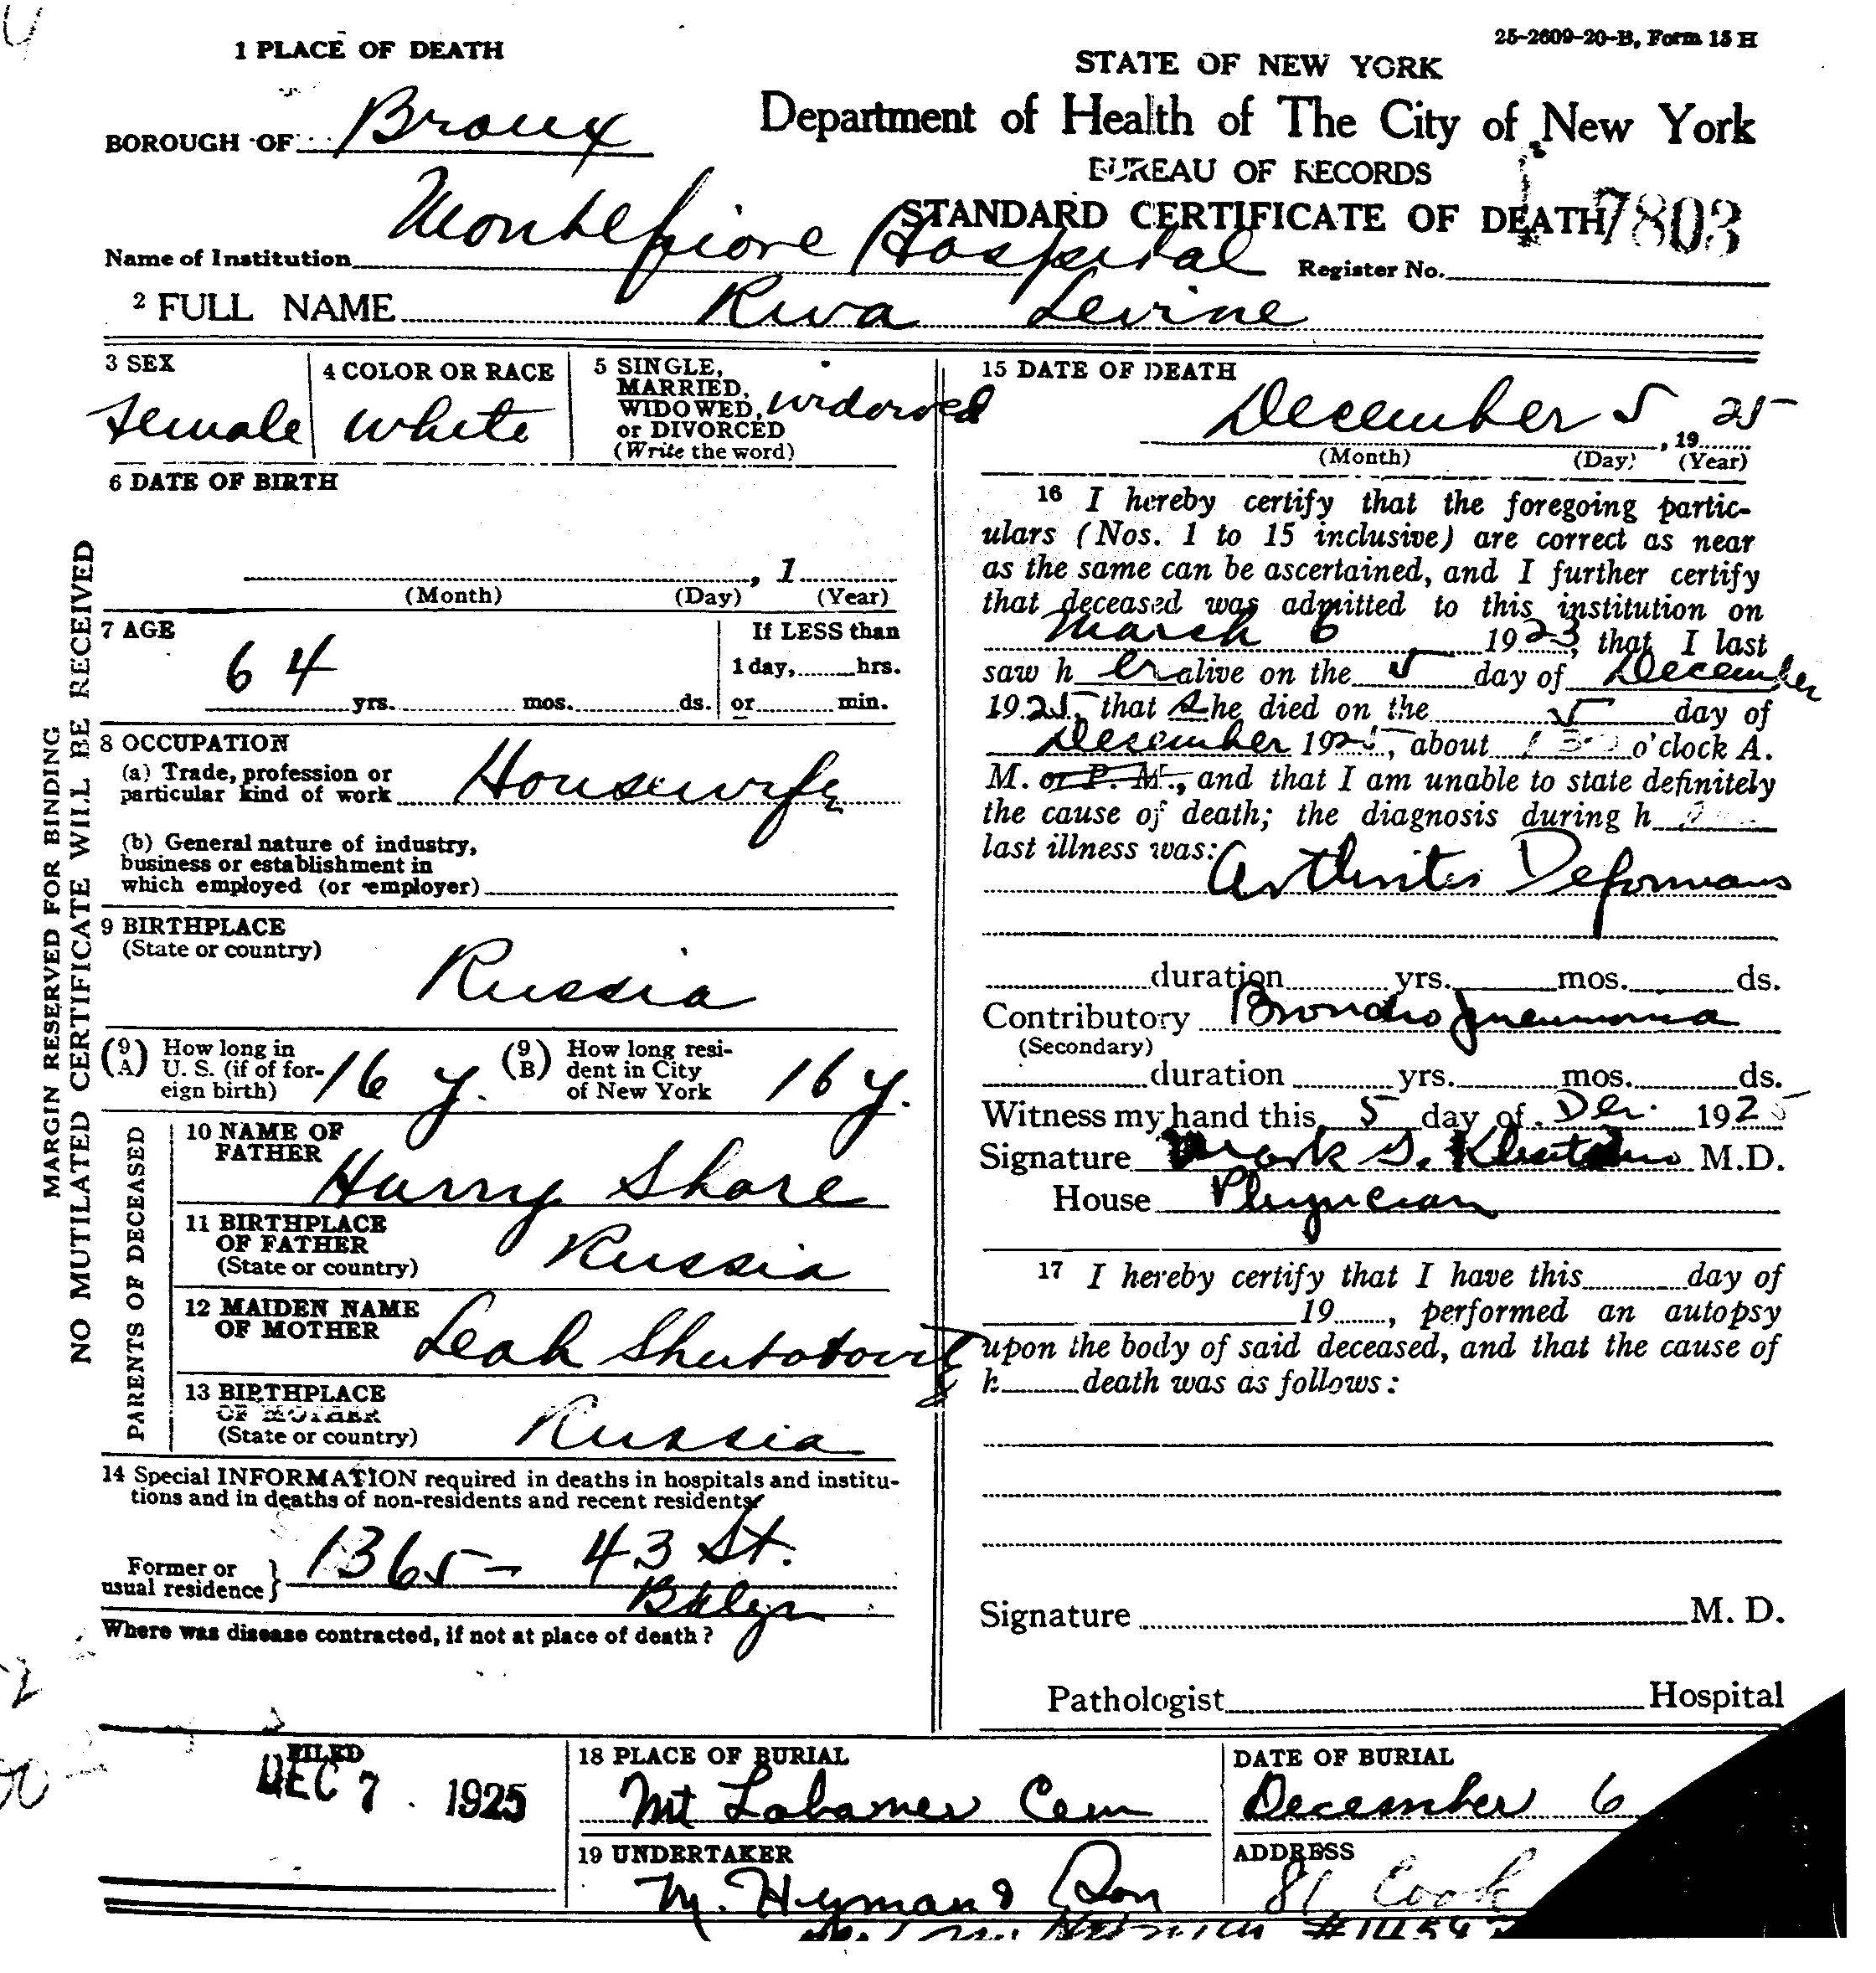 25-2609-20-B, Form 15 H
1 PLACE OF DEATH
STATE OF NEW YORK
BOROUGH OF Bronx
Department of Health of The City of New York
BUREAU OF RECORDS
STANDARD CERTIFICATE OF DEATH 7803
Name of Institution Montefiore Hospital
Register No.
2 FULL NAME Riva Levine
3 SEX
female
4 COLOR OR RACE
White
5 SINGLE,
MARRIED,
WIDOWED,
or DIVORCED
(Write the word)
widowed
6 DATE OF BIRTH
, 1
(Month) (Day) (Year)
7 AGE
64
yrs. mos. ds.
If LESS than
1 day, hrs.
or min.
8 OCCUPATION
(a) Trade, profession or
particular kind of work Housewife
(b) General nature of industry,
business or establishment in
which employed (or employer)
9 BIRTHPLACE
(State or country)
Russia
(9A) How long in
U. S. (if of for-
eign birth)
16 y.
(9B) How long resi-
dent in City
of New York
16 y.
PARENTS OF DECEASED
10 NAME OF
FATHER
Harry Shore
11 BIRTHPLACE
OF FATHER
(State or country)
Russia
12 MAIDEN NAME
OF MOTHER
Leah
13 BIRTHPLACE
OF MOTHER
(State or country)
Russia
14 Special INFORMATION required in deaths in hospitals and institu-
tions and in deaths of non-residents and recent residents
Former or
usual residence
1365 - 43 St.
Bklyn
Where was disease contracted, if not at place of death?
MARGIN RESERVED FOR BINDING
NO MUTILATED CERTIFICATE WILL BE RECEIVED
15 DATE OF DEATH
December 5, 1925
(Month) (Day) (Year)
16 I hereby certify that the foregoing partic-
ulars (Nos. 1 to 15 inclusive) are correct as near
as the same can be ascertained, and I further certify
that deceased was admitted to this institution on
March 6 1923, that I last
saw h er alive on the 5 day of December
1925, that she died on the 5 day of
December 1925, about o'clock A.
M. or P. M., and that I am unable to state definitely
the cause of death; the diagnosis during h
last illness was:
Arthritis Deformans
duration yrs. mos. ds.
Contributory Broncho pneumonia
(Secondary)
duration yrs. mos. ds.
Witness my hand this 5 day of Dec. 1925
Signature Mark S. M.D.
House Physician
17 I hereby certify that I have this day of
19 , performed an autopsy
upon the body of said deceased, and that the cause of
h death was as follows:
Signature M. D.
Pathologist Hospital
FILED
DEC 7 . 1925
18 PLACE OF BURIAL
Mt Cem
DATE OF BURIAL
December 6
19 UNDERTAKER
M. Hyman & Son
ADDRESS
81 Cook